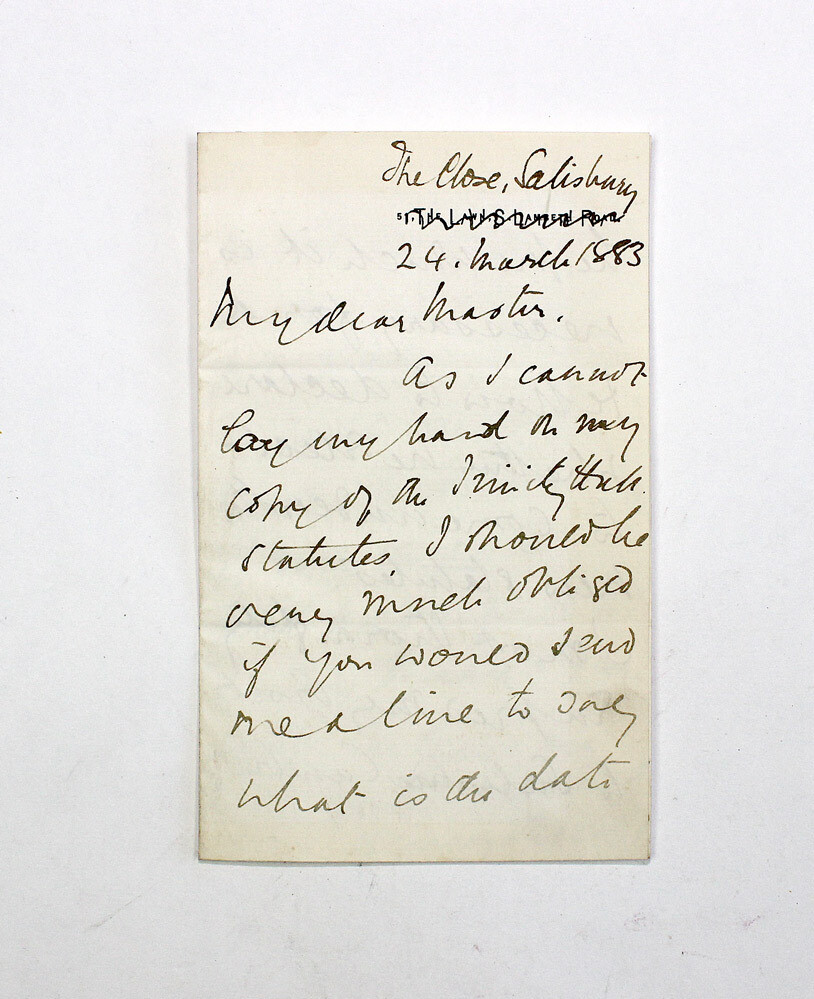 The Close, Salisbury
51, The Lawn, S. Lambeth Road.
24. March 1883
My dear Master,
As I cannot
lay my hand on my
copy of the Trinity Hall
statutes, I should be
very much obliged
if you would send
me a line to say
what is the date